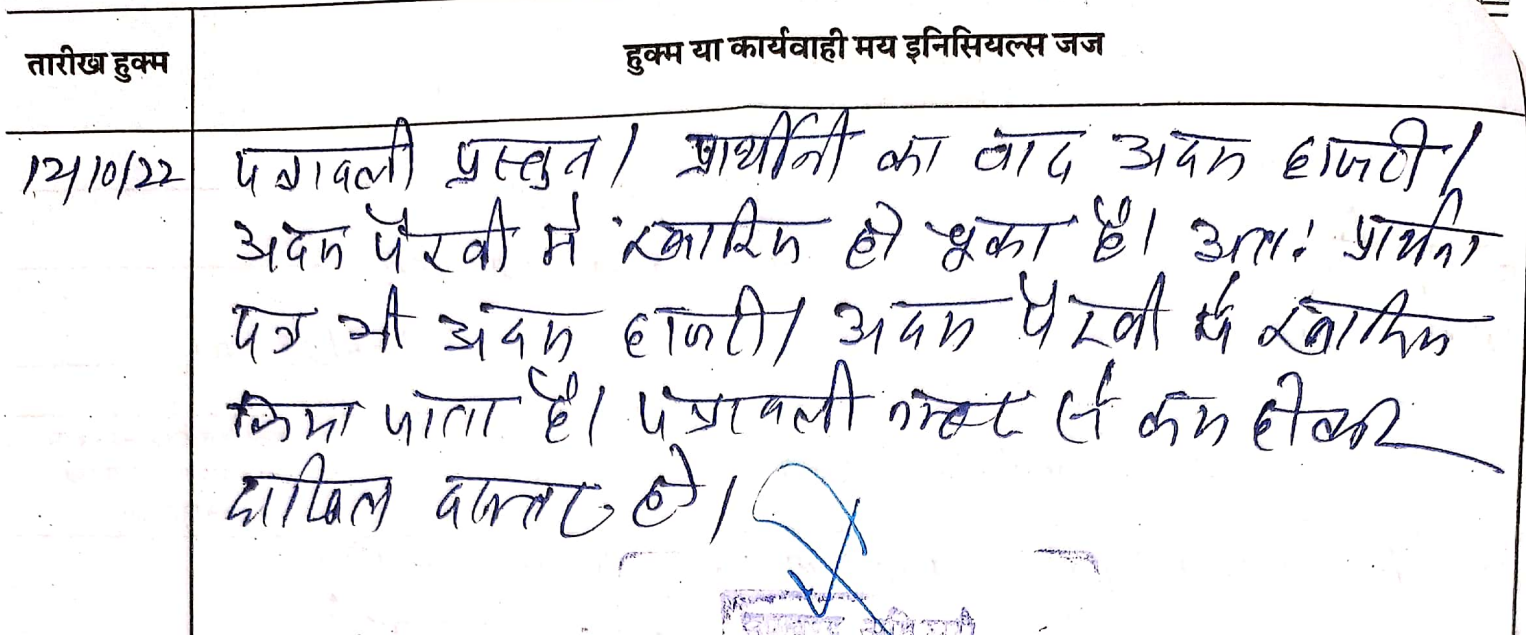 तारीख हुक्म
हुक्म या कार्यवाही मय इनिसियल्स जज
12/10/22
पत्रावली प्रस्तुत। प्रार्थीनी का वाद अदम हाजरी/
अदम पैरवी मे खारिज हो चूका है। अतः प्रार्थना
पत्र भी अदम हाजरी/ अदम पैरवी मे खारिज
किया जाता है। पत्रावली नम्बर से कम होकर
दाखिल दफ्तर हो।